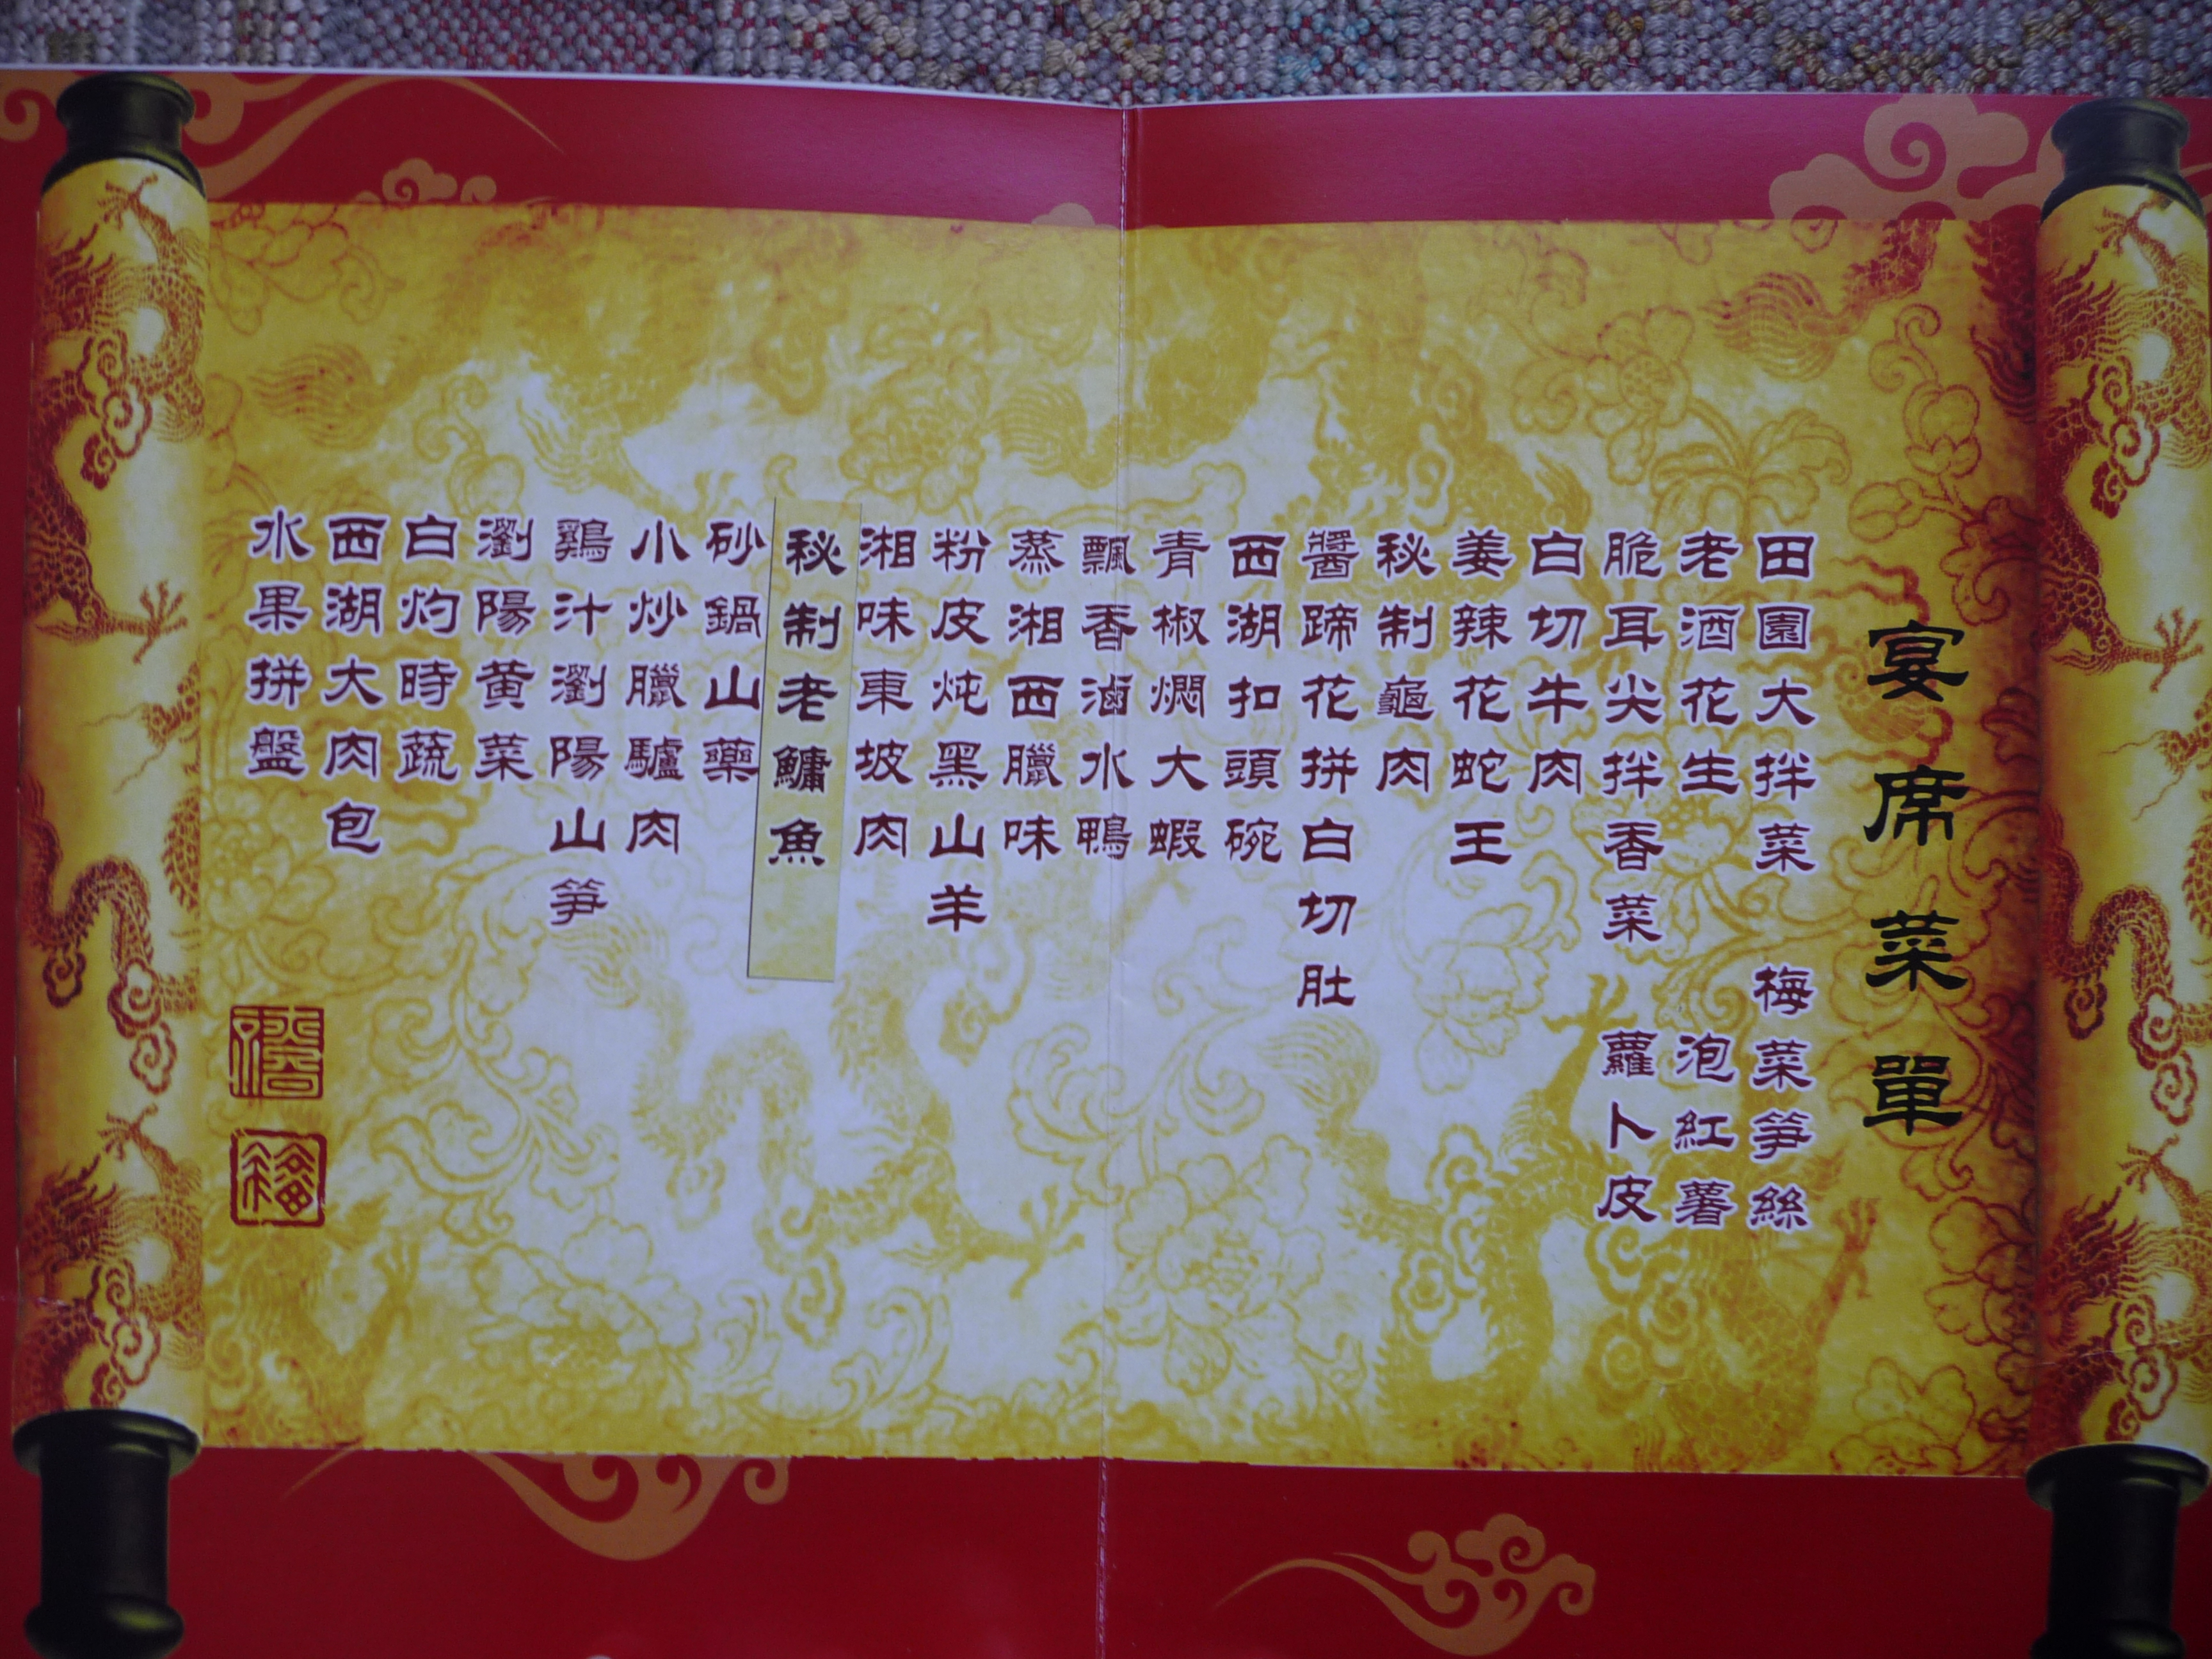 宴席菜單
田園大拌菜 梅菜笋絲
老酒花生 泡紅薯
脆耳尖拌香菜 蘿卜皮
白切牛肉
姜辣花蛇王
秘制龜肉
醬蹄花拼白切肚
西湖扣頭碗
青椒燜大蝦
飄香滷水鴨
蒸湘西臘味
粉皮炖黑山羊
湘味東坡肉
秘制老鱅魚
砂鍋山藥
小炒臘驢肉
鷄汁瀏陽山笋
瀏陽黃菜
白灼時蔬
西湖大肉包
水果拼盤